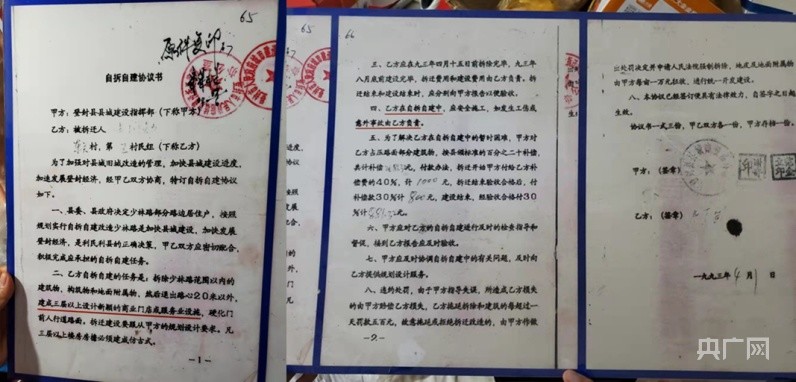 65
原件复印
自拆自建协议书
甲方：登封县县城建设指挥部（下称甲方）
乙方：被拆迁人
村，第 村民组（下称乙方）
为了加强对县城旧城改造的管理，加快县城建设进度，
加速发展登封经济，经甲乙双方协商，特订自拆自建协议
如下。
一、县委、县政府决定少林路部分路边居住户，按照
规划实行自拆自建改造少林路是加快县城建设，加快发展
登封经济，是利民利县的正确决策，甲乙双方应密切配合，
积极完成应承担的自拆自建任务。
二、乙方自拆自建的任务是：拆除少林路范围以内的
建筑物，构筑物和地面附属物，然后退出路心20米以外，
建成三层以上设计新颖的商业门店或服务业设施，硬化门
前人行道路面。拆迁建设要服从甲方的规划设计要求。凡
三层以上楼房房檐必须建成仿古式。
－1－
65
66
三、乙方应在九三年四月十五日前拆除完毕，九三年
八月底前建设完毕，拆迁费用和建设费用由乙方负责。拆
迁结束和建设结束时，应分别向甲方报告以便验收。
四、乙方在自拆自建中，应安全施工，如发生工伤或
意外事故由乙方负责。
五、为了解决乙方在自拆自建中的暂时困难，甲方对
乙方占压路面部分建筑物，按县颁标准的百分之二十补偿
共计补偿 元。付款办法，拆迁开始甲方付给乙方补
偿费的40％，计 1000 元，拆迁结束验收合格后，付
补偿款30％计 800 元，建设结束，经验收合格付30
％计 元。
六、甲方应对乙方的自拆自建进行及时的检查指导和
督促，接到乙方报告应及时验收。
七、甲方应及时协调自拆自建中的有关问题，及时向
乙方提供规划设计服务。
八、违约处罚，由于甲方指导失误，所造成乙方损失
的由甲方赔偿乙方损失，乙方拖延拆除和建筑的每超过一
天罚款五百元，故意拖延或拒绝拆迁改造的，由甲方作做
－2－
出处罚决定并申请人民法院强制拆除，地皮及地面附属物
由甲方每亩一万元征收，进行统一开发建设。
八、本协议已经签订便具有法律效力，自签字之日起
生效。
协议书一式三份，甲乙双方各一份，甲方存档一份。
甲方：（签章）
乙方：（签章）
一九九三年 4 月 1 日
央广网